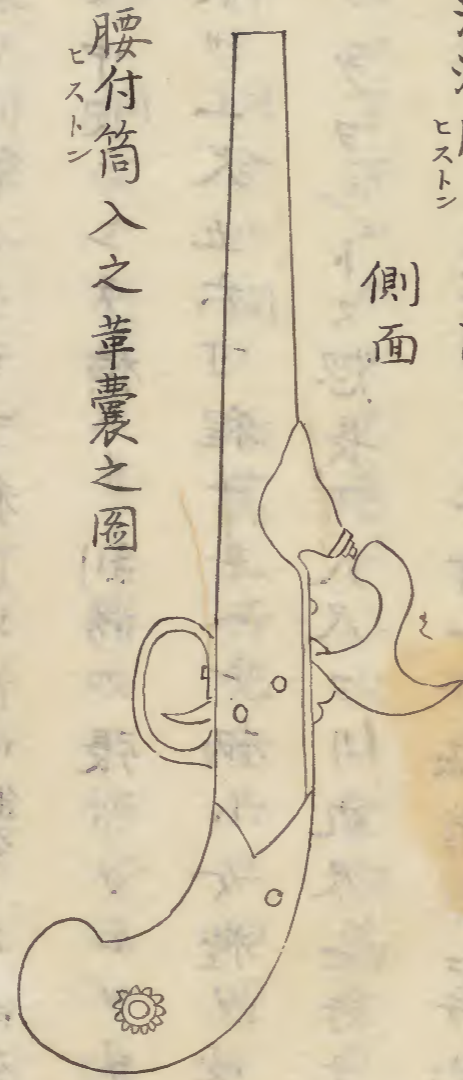 ヒストン
側面
腰付筒入之革嚢之圖
ヒストン